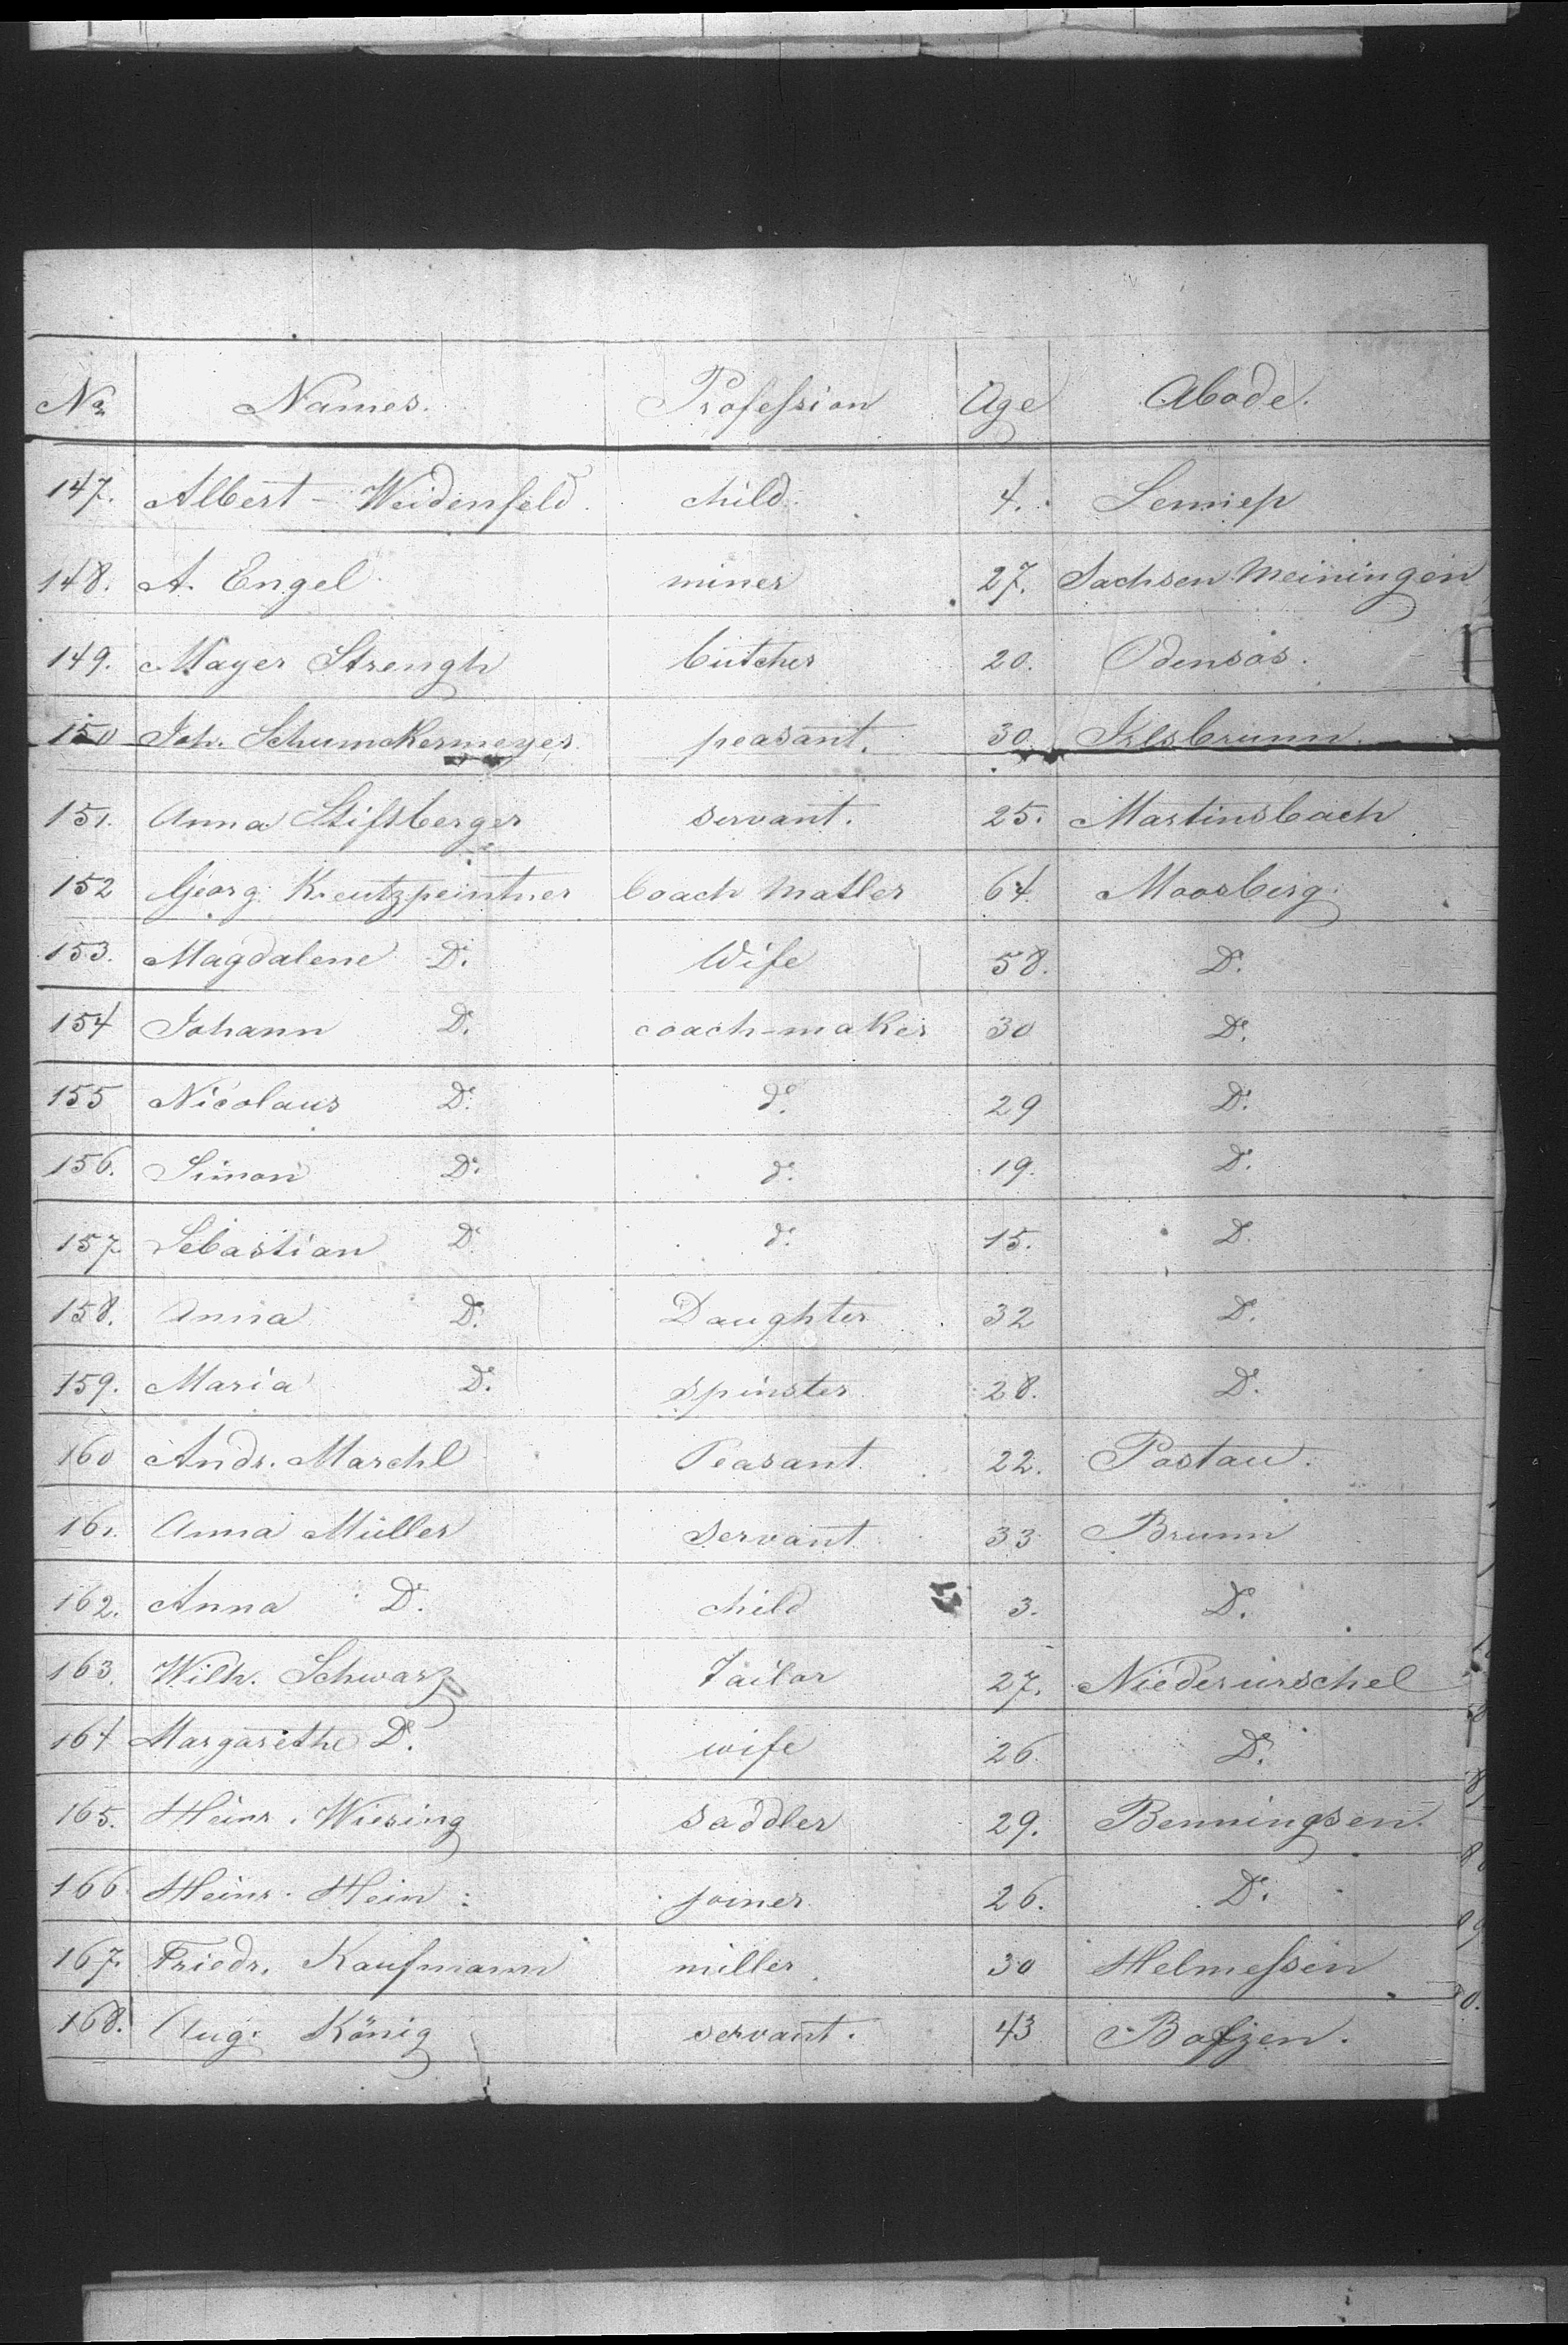 No. Names. Profession Age Abode.
147. Albert Weidenfeld. child. 4. Lennep
148. A. Engel miner 27. Sachsen Meiningen
149. Mayer Strengh butcher 20. Odensos.
150 Joh. Schumckermeyer peasant. 30
151. Anna Stifsberger servant. 25. Martinsbach
152 Georg Kreutzpeintner Coach Matler 64 Moosberg
153. Magdalene Do. Wife 58. Do.
154 Johann Do. coach-maker 30 Do.
155 Nicolaus Do. do. 29 Do.
156. Simon Do. do. 19. Do.
157 Sebastian Do. do. 15. Do.
158. Anna Do. Daughter 32 Do.
159. Maria Do. spinster 28. Do.
160 Andr. Marchl Peasant 22. Postau.
161. Anna Müller Servant 33 Brunn
162. Anna Do. child 3. Do.
163. Wilh. Schwarz Tailor 27. Niederurschel
164 Margarethe Do. wife 26 Do.
165. Heinr. Wiesing saddler 29. Benningsen.
166. Heinr. Hein joiner 26. Do.
167. Friedr. Kaufmann miller 30 Helmessen
168. Aug. König servant. 43 Bofzen.